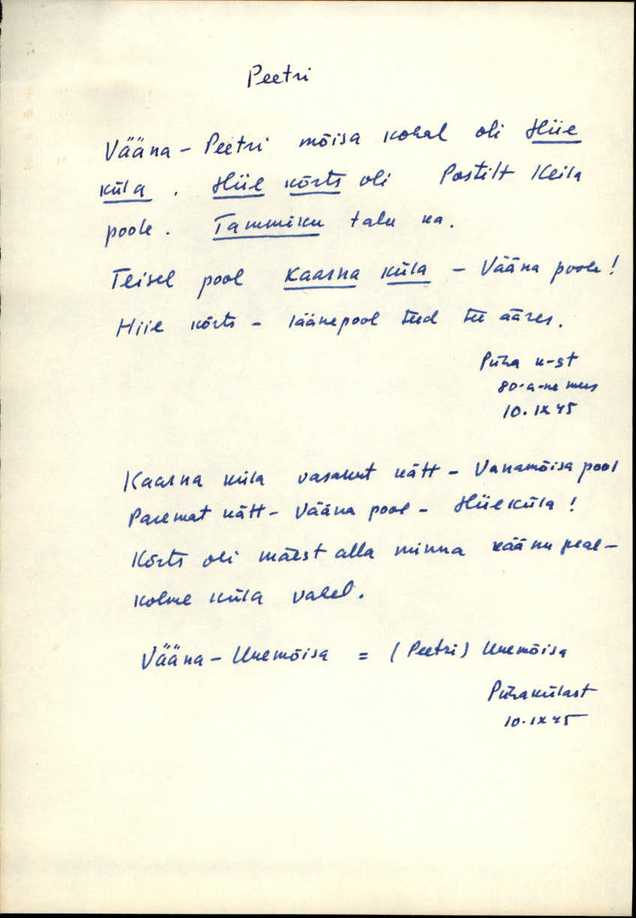 Peetri
Vääna - Peetri mõisa kohal oli Hiie
küla. Hiie kõrts oli Postilt Keila
poole. Tammiku talu ka.
Teisel pool Kaasna küla - Vääna poole!
Hiie kõrts - läänepool teed tee ääres.
Püha k-st
80-a-ne mees
10.IX 45
Kaasna küla vasakut kätt - Vanamõisa pool
Paremat kätt - Vääna pool - Hiieküla!
Kõrts oli mäest alla minna käänu peal -
kolme küla vahel.
Vääna - Uuemõisa = (Peetri) Uuemõisa
Pühakülast
10.IX 45